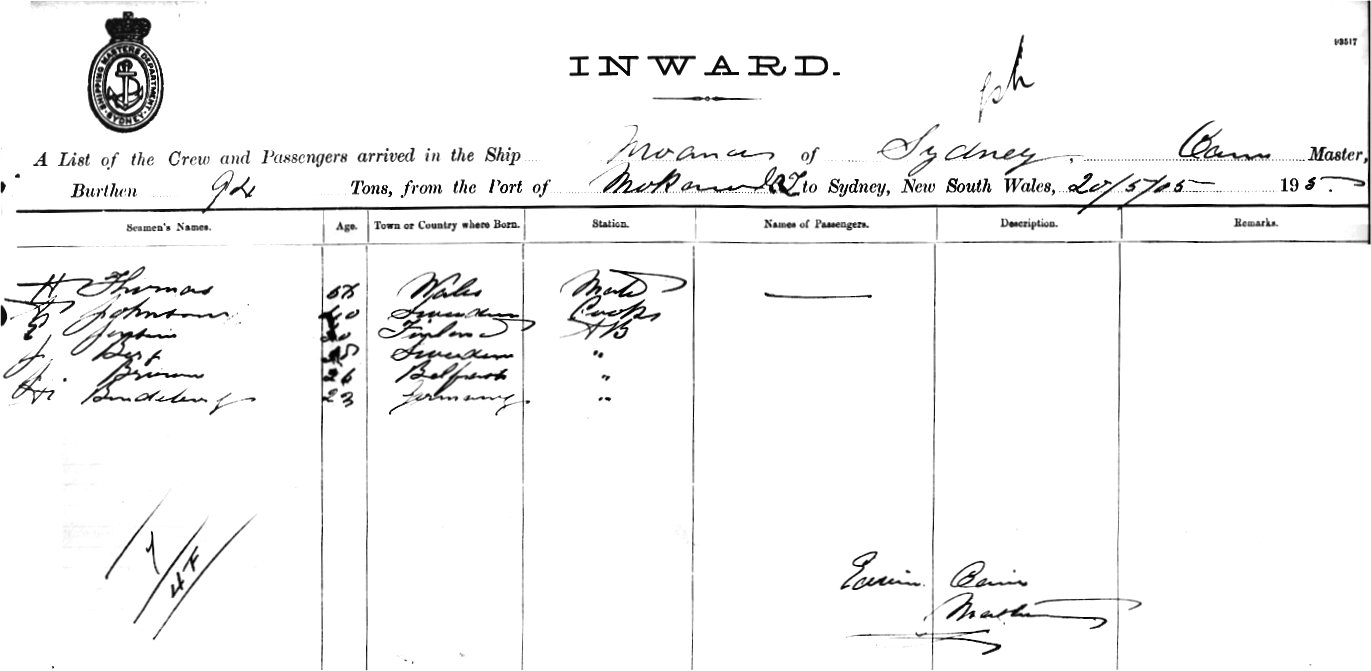 93517
SHIPPING MASTERS DEPARTMENT
SYDNEY
INWARD.
A List of the Crew and Passengers arrived in the Ship Moana of Sydney. Master,
Burthen 94 Tons, from the Port of NZ to Sydney, New South Wales, 20/5/05 195.
Seamen's Names. Age. Town or Country where Born. Station. Names of Passengers. Description. Remarks.
H Thomas Wales Mate
Johnson 40 Sweden Cook
E Finland AB
J. Berg Sweden "
J Brown 26 Belfast "
23 Germany. "
7
4F
Edwin
Master